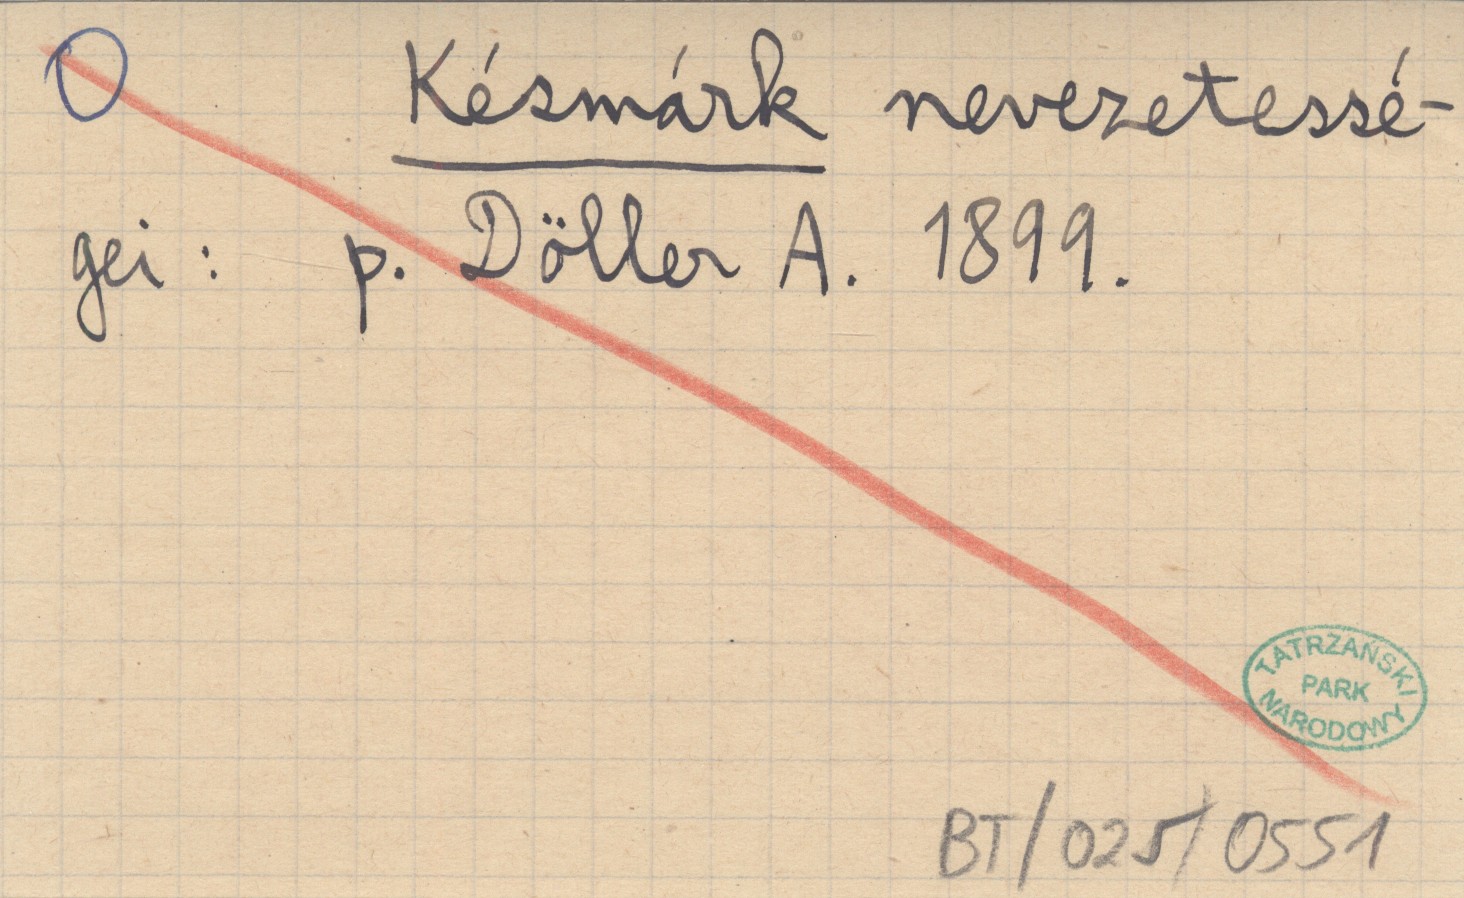 O Késmárk nevezetessé-
gei : p. Döller A. 1899.
TATRZAŃSKI
PARK
NARODOWY
BT/025/0551